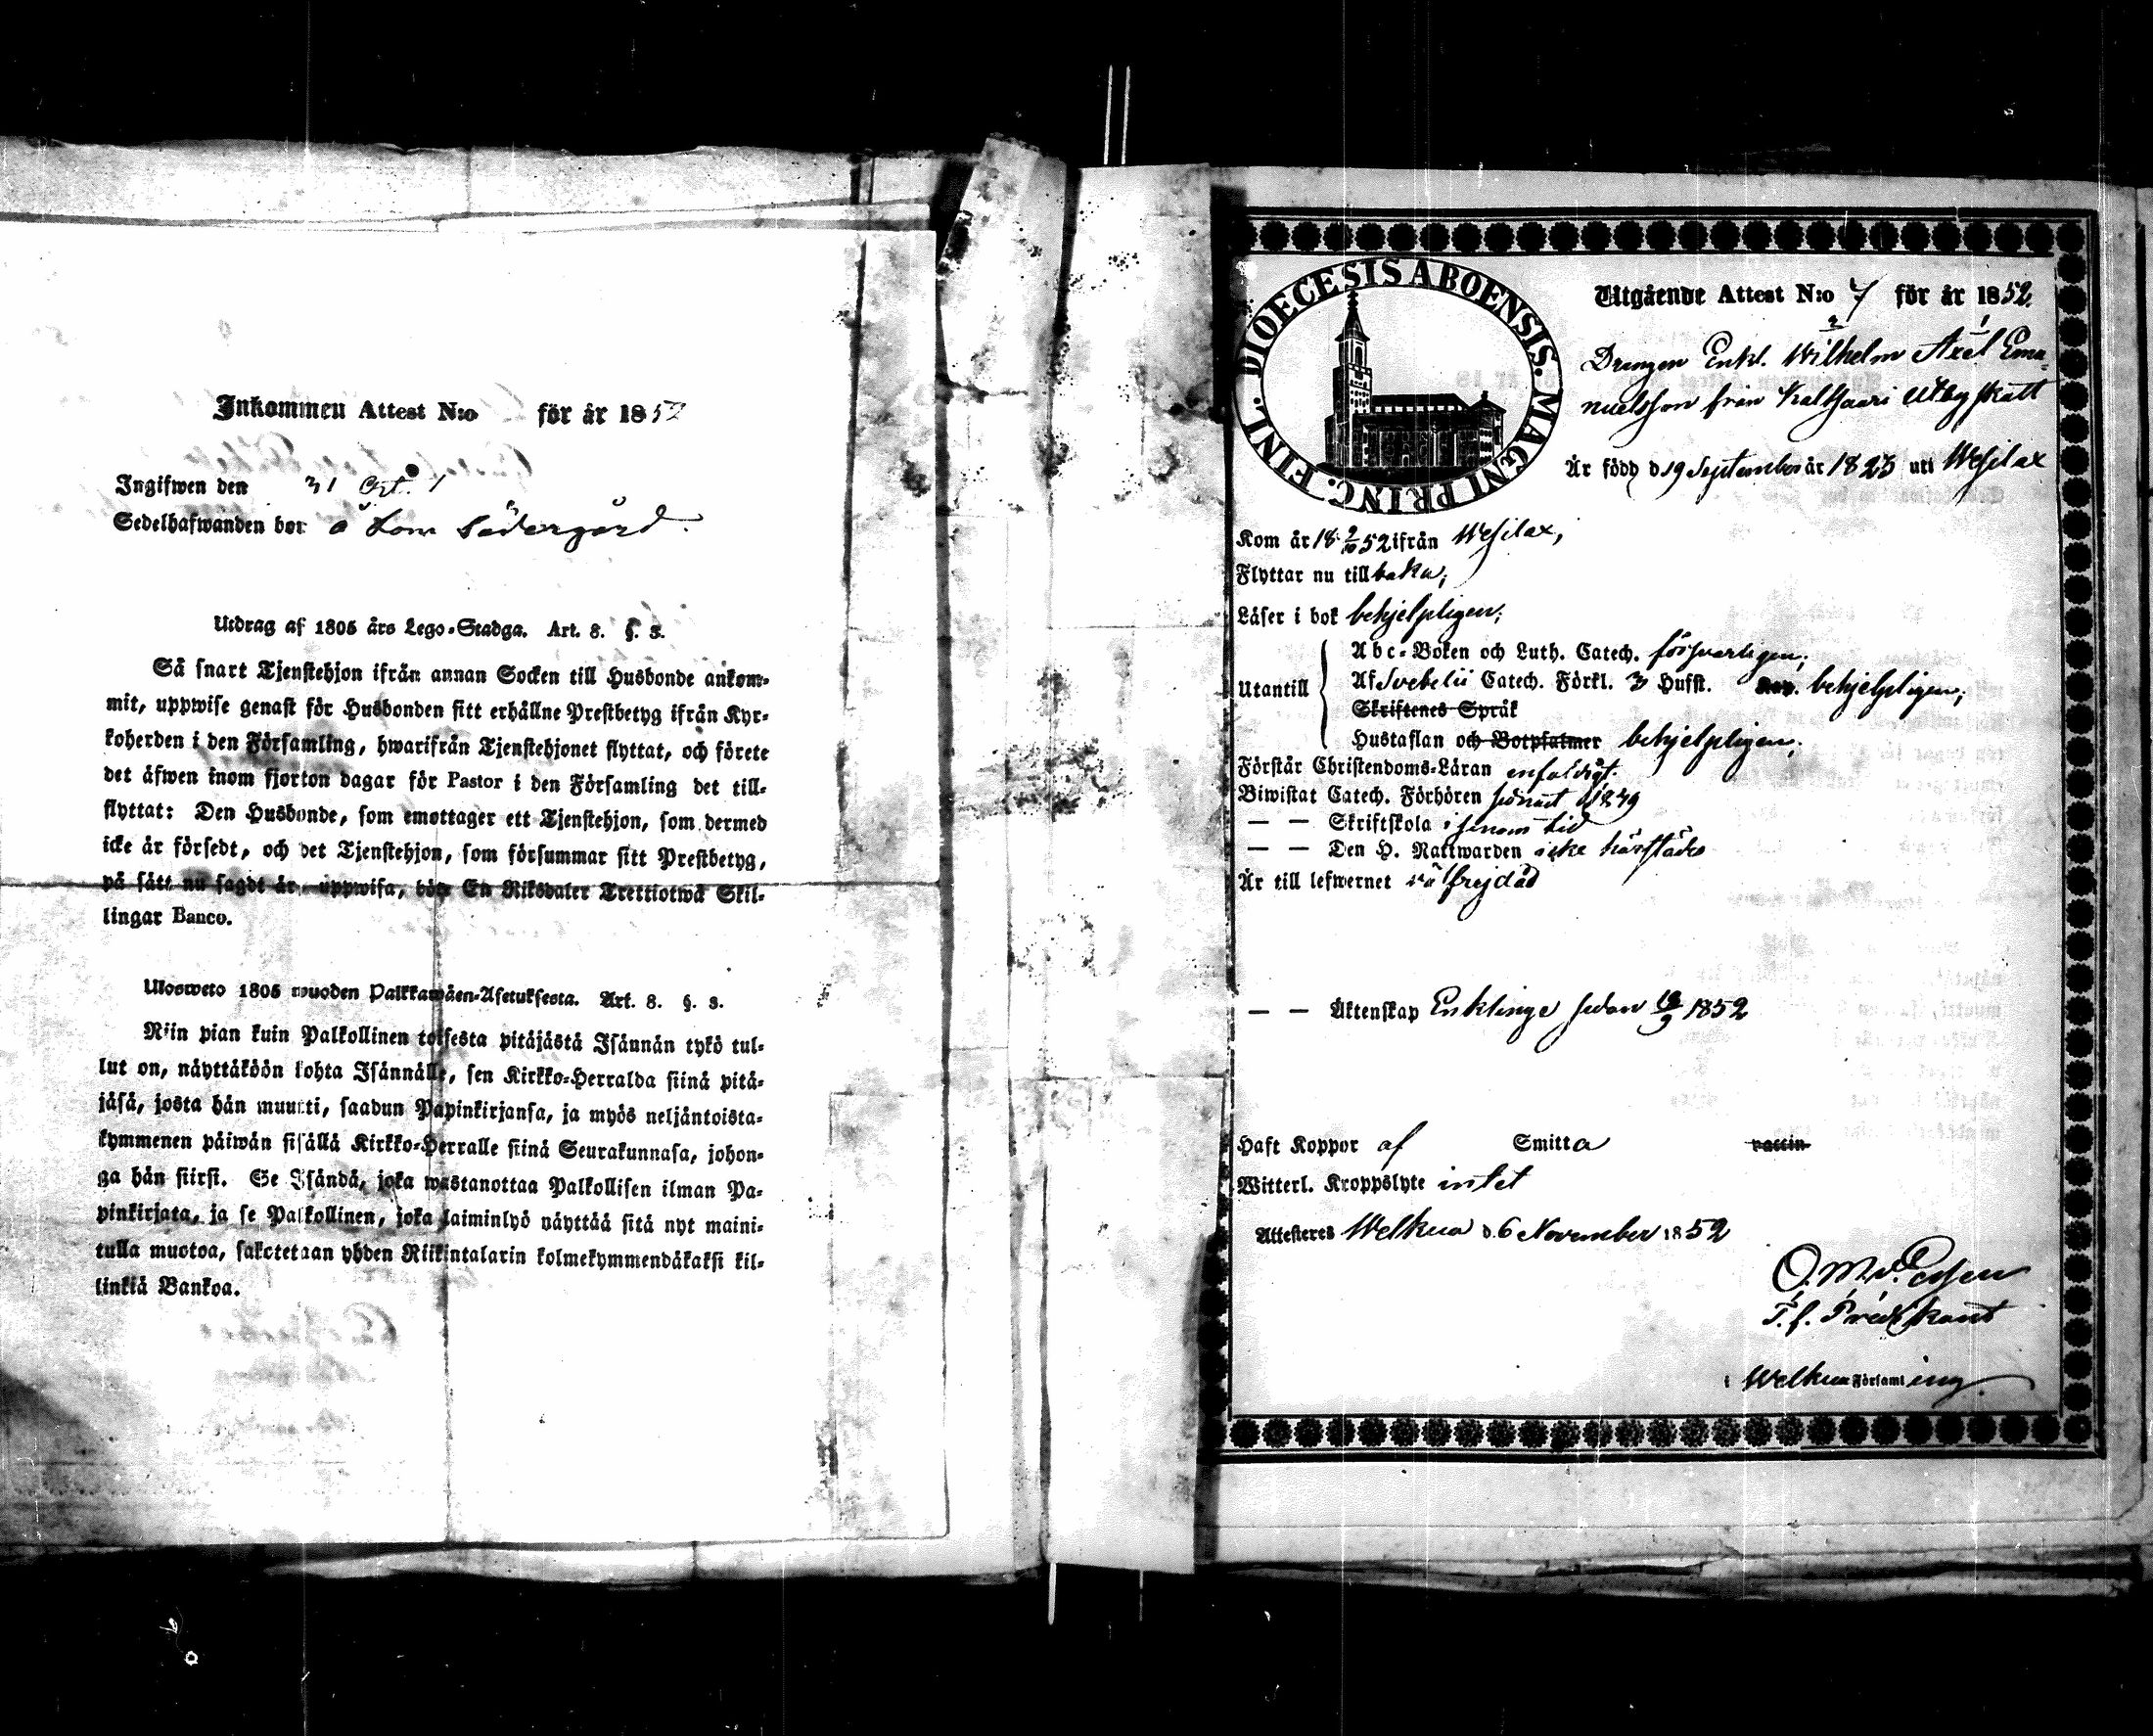 Inkommen Attest N:o för år 1852
Ingifwen den 31 Oct.
Sedelhafwanden bor å Lom Södergård.
Utdrag af 1805 års Lego-Stadga. Art. 8. §. 3.
Så snart Tjenstehjon ifrån annan Socken till Husbonde ankom-
mit, uppwise genast för Husbonden sitt erhållne Prestbetyg ifrån Kyr-
koherden i den Församling, hwarifrån Tjenstehjonet flyttat, och förete
det äfwen inom fjorton dagar för Pastor i den Församling det till-
flyttat: Den Husbonde, som emottager ett Tjenstehjon, som dermed
icke är försedt, och det Tjenstehjon, som försummar sitt Prestbetyg,
på sätt nu sagdt är uppwisa, böte En Riksdaler Trettiotwå Skil-
lingar Banco.
Ulosweto 1805 wuoden Palkkawäen-Asetuksesta. Art. 8. §. 3.
Niin pian kuin Palkollinen toisesta pitäjästä Isännän tykö tul-
lut on, näyttäköön kohta Isännälle, sen Kirkko-Herralda siinä pitä-
jäsä, josta hän muutti, saadun Papinkirjansa, ja myös neljäntoista-
kymmenen päiwän sisällä Kirkko-Herralle siinä Seurakunnasa, johon-
ga hän siirsi. Se Isändä, joka wastanottaa Palkollisen ilman Pa-
pinkirjata, ja se Palkollinen, joka laiminlyö näyttää sitä nyt maini-
tulla muotoa, sakotetaan yhden Riikintalarin kolmekymmendäkaksi kil-
linkiä Bankoa.
DIOECESIS ABOENSIS. MAGNI PRINC. FINL.
Utgående Attest N:o 7 för år 1852.
Drengen Enkl. Wilhelm Axel Ema-
nuelsson från Kalksaari Utby skatt
Är född d. 19 September år 1823 uti Wesilax
Kom år 18 2/10 52 ifrån Wesilax,
Flyttar nu tillbaka;
Läser i bok behjelpligen;
Utantill
Abc-Boken och Luth. Catech. försvarligen;
Af Svebelii Catech. Förkl. 3 Hufst. behjelpligen;
Skriftenes Språk
Hustaflan och Botpsalmer behjelpligen;
Förstår Christendoms-Läran enfaldigt.
Biwistat Catech. Förhören senast 1849
— — Skriftskola i senom tid
— — Den H. Nattwarden icke härstädes
Är till lefwernet välfrejdad
— — Äktenskap Enklinge sedan 12/9 1852
Haft Koppor af Smitta vaccin
Witterl. Kroppslyte intet
Attesteras Welkua d. 6 November 1852
O. M. v. Essen
T. f. Predikant
i Welkua Församling.